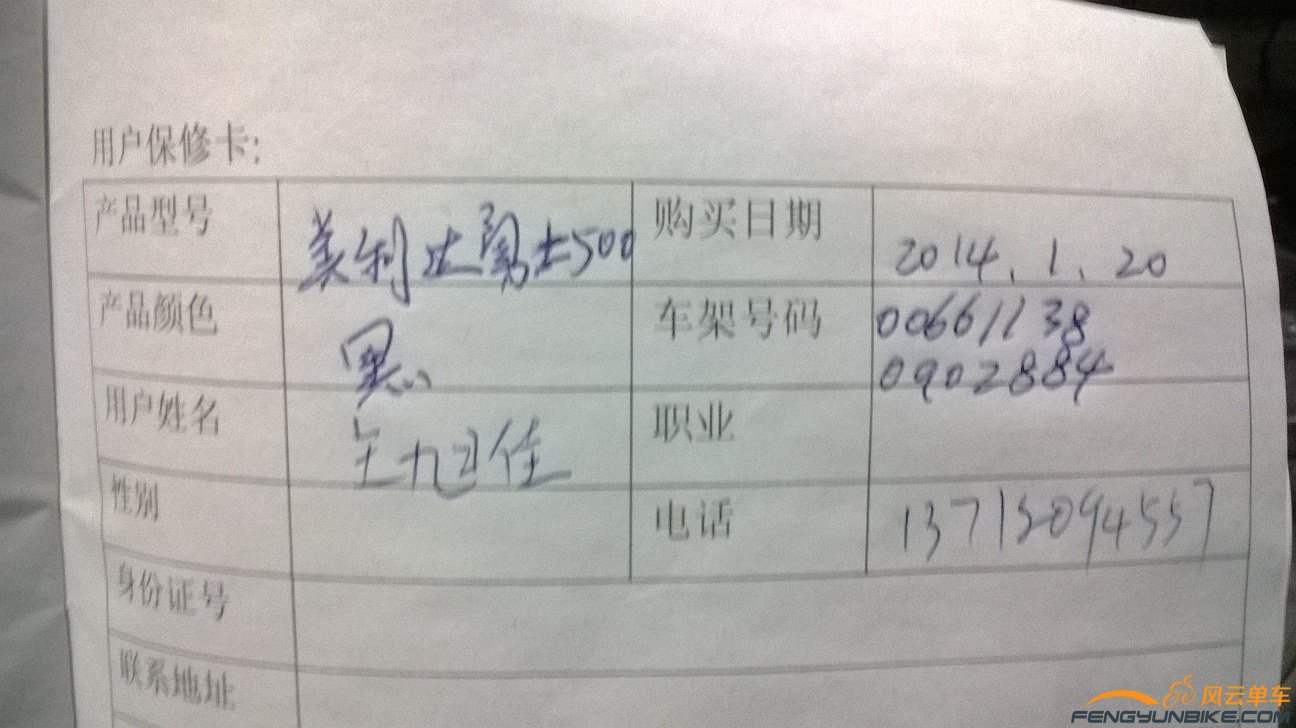 用户保修卡:
产品型号 美利达勇士500 购买日期 2014.1.20
产品颜色 黑 车架号码 00661138
0902884
用户姓名 王旭佳 职业
性别 电话 13715094557
身份证号
联系地址
风云单车
FENGYUNBIKE.COM